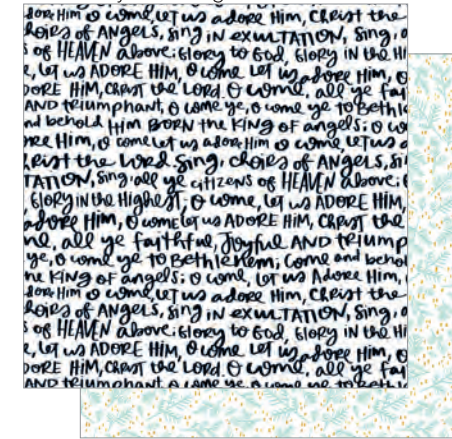 O come, let us adore Him, Christ the
choirs of Angels, sing in exultation, Sing,
s of HEAVEN above; Glory to God, Glory in the Hi
e, let us ADORE HIM, O come let us adore Him, O
DORE HIM, CHRIST the LORD. O come, all ye fai
AND triumphant, O come ye, O come ye to Bethle
nd behold Him BORN the KING of angels; O co
ore Him, O come let us adore Him O come, let us a
Christ the Lord Sing, choirs of ANGELS, si
TATION, Sing, all ye citizens of HEAVEN above; G
Glory in the Highest; O come, let us ADORE HIM,
adore Him, O come let us ADORE HIM, CHRIST the
me, all ye faithful, Joyful AND triump
ye, O come ye to Bethlehem; Come and behol
he KING of angels; O come, let us Adore Him,
dore Him O come, let us adore Him, Christ the
choirs of Angels, sing in exultation, Sing,
s of HEAVEN above; Glory to God, Glory in the Hi
e, let us ADORE HIM, O come let us adore Him, O
DORE HIM, CHRIST the LORD. O come, all ye fai
AND triumphant, O come ye, O come ye to Bethle